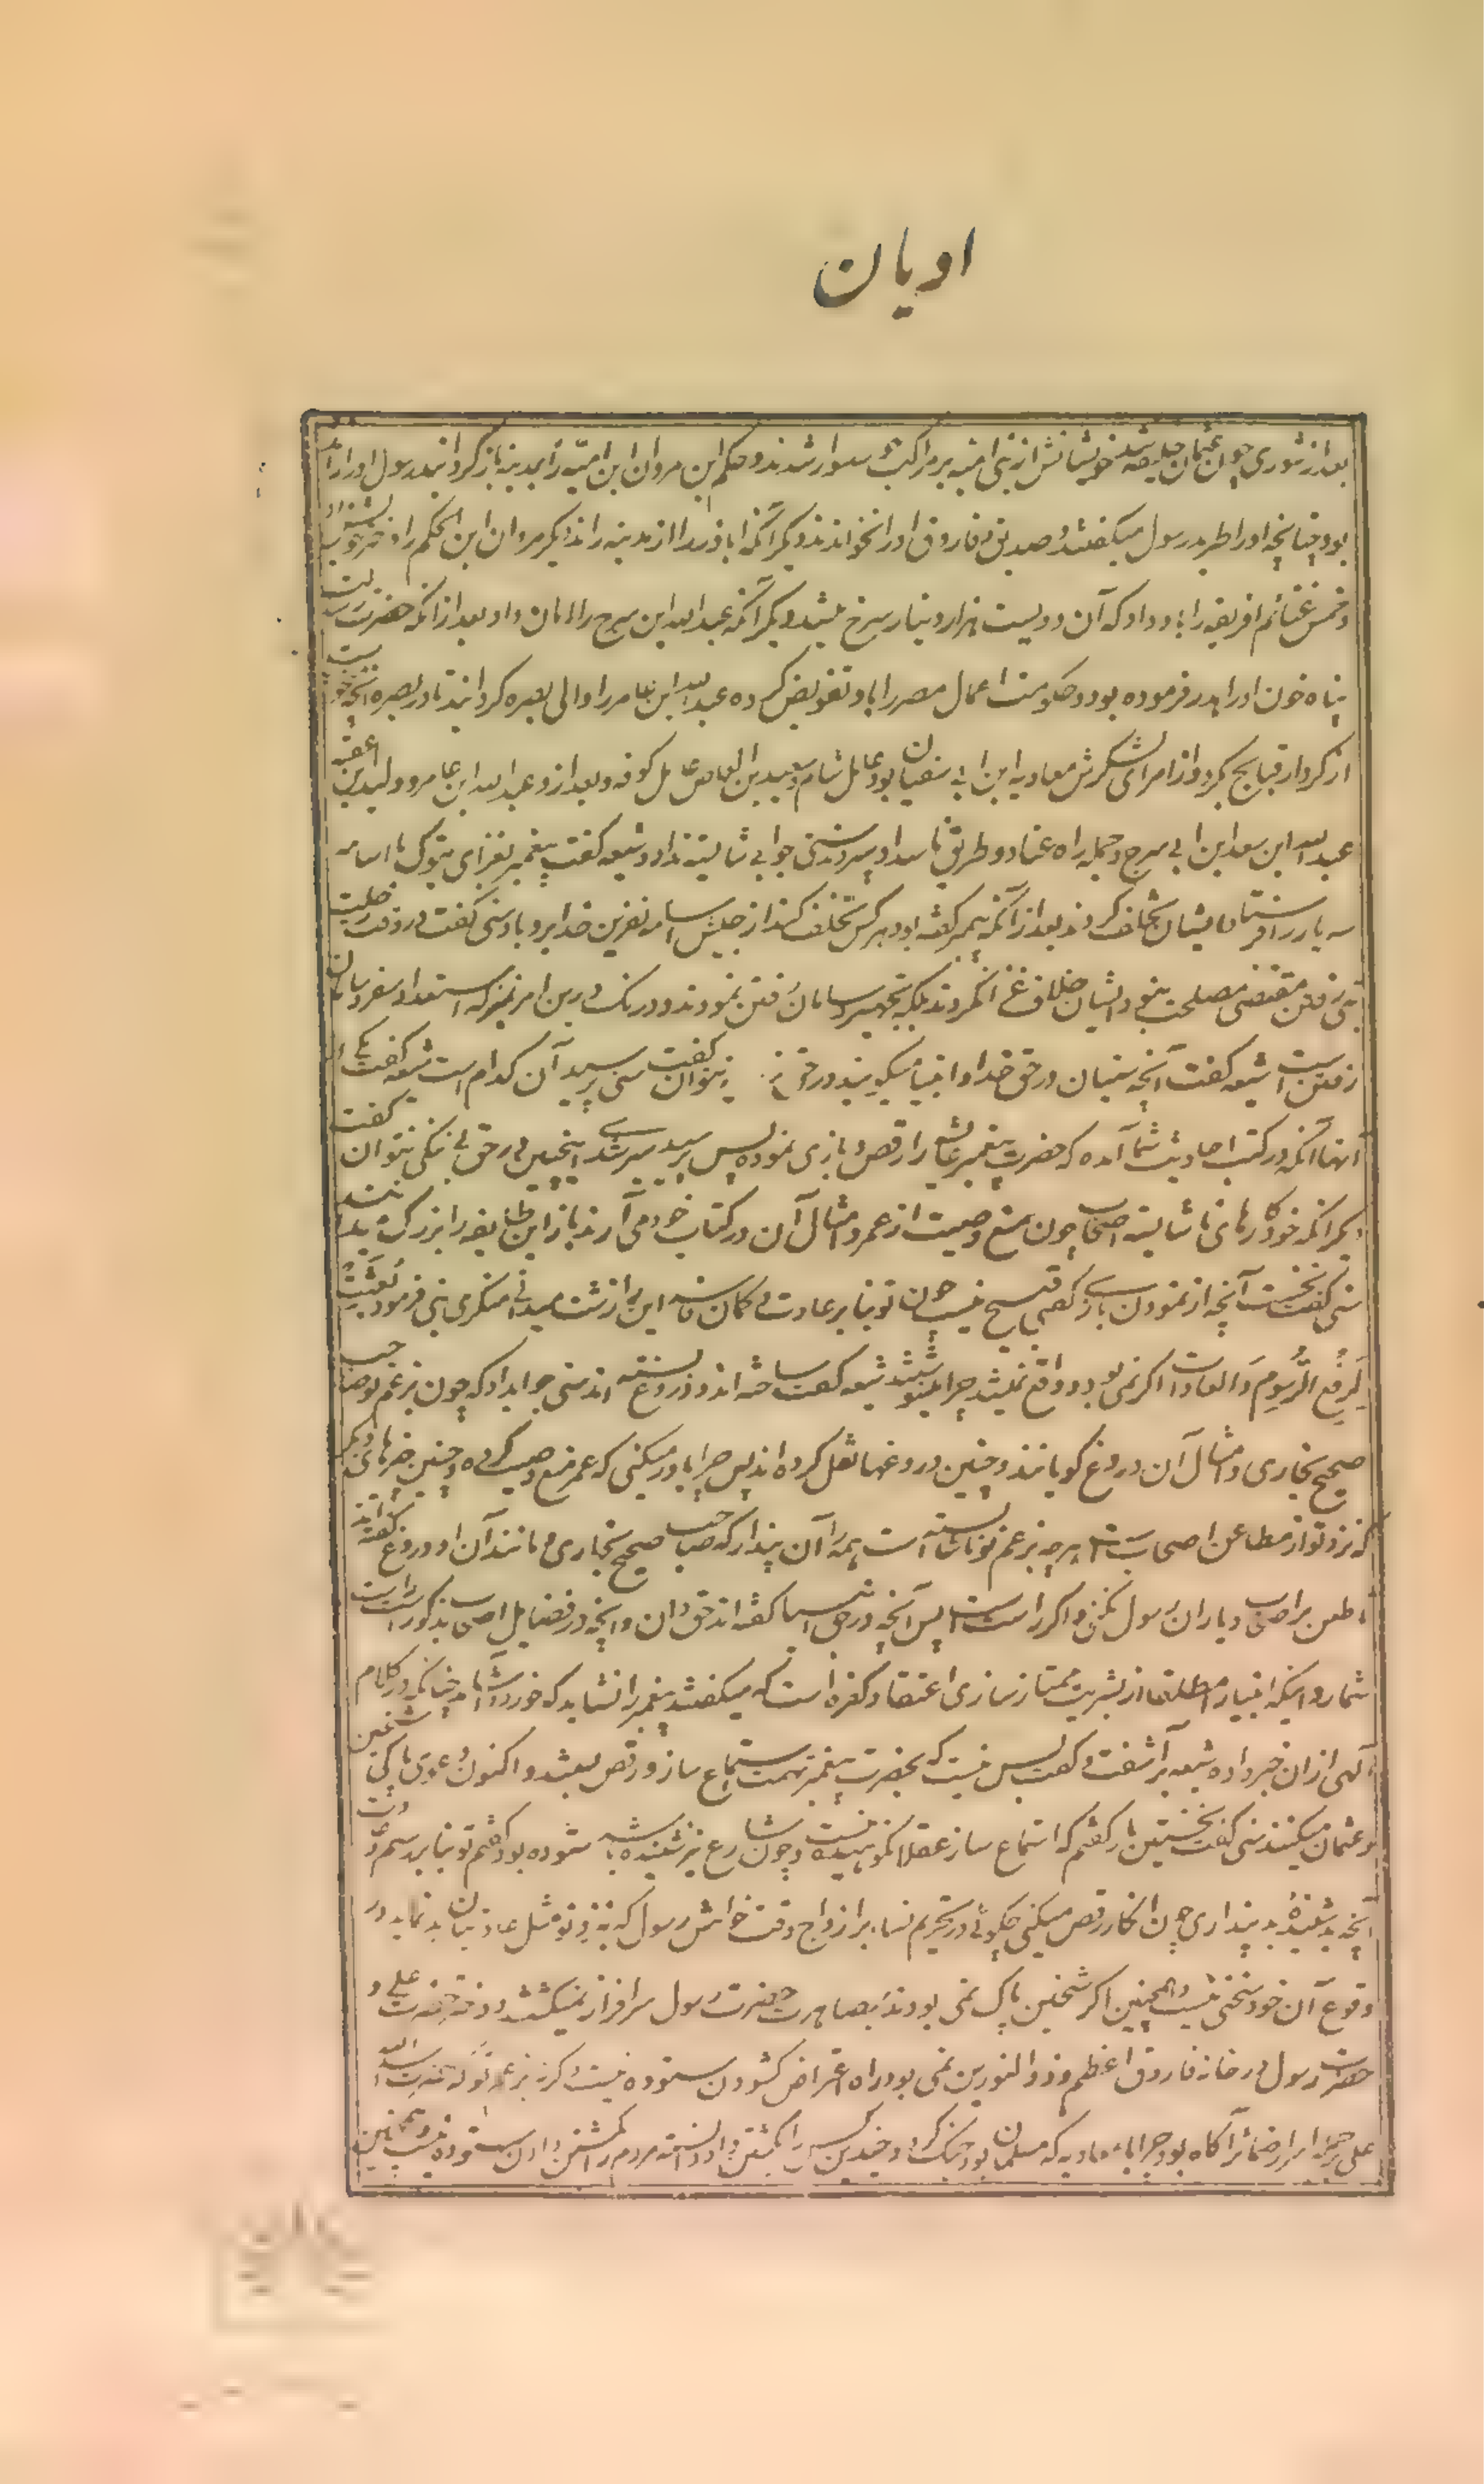 ادیان
بعد از شوری چون عثمان خلیفه شد خویشانش از بنی امیه بر مراکب سوار شدند و حکم ابن مروان ابن امیه را بمدینه باز گردانید رسول او را رانده
بود چنانچه او را طرید رسول میگفتند و صدیق و فاروق او را نخواندند دیگر آنکه اباذر را از مدینه راند دیگر مروان ابن الحکم را دختر خود داد
و خمس غنائم افریقه را باو داد که آن دویست هزار دینار سرخ میشد دیگر آنکه عبدالله ابن سرح را امان داد بعد از آنکه حضرت رسالت
پناه خون او را هدر فرموده بود و حکومت اعمال مصر را باو تفویض کرده عبدالله ابن عامر را والی بصره گردانید تا در بصره آنچه خواست
از کردار قبایح کرد و از امرای لشکرش معاویه ابن ابی سفیان بود عامل شام و سعید ابن العاص عامل کوفه و بعد از و عبدالله ابن عامر و ولید ابن عقبه
عبدالله ابن سعد ابن ابی سرح و جمله راه عناد و طریق ناسداد سپردند سنی جوابی شایسته نداد و شیعه گفت پیغمبر بغزای تبوک با اسامه
سه یار را فرستاد ایشان تخلف کردند بعد از آنکه پیمبر گفته بود هر کس تخلف کند از جیش اسامه نفرین خدا برو باد سنی گفت در وقت رحلت
نبی رفتن مقتضی مصلحت نبود و ایشان خلاف غزا نکردند بلکه تجهیز و سامان رفتن نمودند و درنگ درین امر نیز که استعداد سفر و سامان
رفتن است شیعه گفت آنچه سنیان در حق خدا و انبیا میگویند در حق نتوان گفت سنی پرسید آن کدام است شیعه گفت یکی از
آنها آنکه در کتب احادیث شما آمده که حضرت پیغمبر عایشه را رقص و بازی نموده پس پرسید سیر شدی اینچنین در حق بی ننگی نتوان گفت
دیگر آنکه خود کارهای ناشایسته اصحاب چون منع وصیت از عمر و امثال آن در کتاب خود می آرند باز این طایفه را بزرگ میدانند
سنی گفت نخست آنچه از نمودن بازی گفتی قبیح نیست چون تو بنابر عادت و گمان فاسد این را زشت میدانی منکری نبی فرمود بعثت
لرفع الرسوم والعادات اگر نمی بود و واقع نمیشد چرا مینوشتند شیعه گفت ساخته اند و دروغ بسته اند سنی جواب داد که چون بزعم تو صاحب
صحیح بخاری و امثال آن دروغ گویانند و چنین دروغها نقل کرده اند پس چرا باور میکنی که عمر منع وصیت کرده و چنین خبرهای دیگر
که نزد تو از مطاعن اصحابست هر چه بزعم تو ناشایسته است همه را آن پندار که صاحب صحیح بخاری و مانند آن او دروغ گفته اند
و طعن بر اصحاب و یاران رسول مکن و اگر راست است پس آنچه در حق انبیا گفته اند حق دان و آنچه در فضایل اصحاب مذکور است راست
شمار و اینکه انبیا را مطلقا از بشریت ممتاز سازی اعتقاد کفره است که میگفتند پیغمبر را نشاید که خورد و آشامد چنانکه در کلام
الهی از ان خبر داده شیعه برآشفت و گفت بس نیست که بحضرت پیغمبر تهمت استماع ساز و رقص بستید و اکنون دعوی پاکی شیخین
و عثمان میکنند سنی گفت نخستین بار گفتم که استماع ساز عقلا نکوهیده نیست و چون شارع نیز شنیده باشد ستوده بود گفتم تو بنابر رسم و عادت
آنچه بد شنیدهٔ بد پنداری چون انکار رقص میکنی چگوئی در تحریم نساء بر ازواج وقت خواهش رسول که نزد تو مثل عادتیان بد نماید در
وقوع آن خود سخنی نیست و همچنین اگر شیخین پاک نمی بودند بمصاهرت حضرت رسول سرافراز نمیگشتند و دختر حضرت علی و
حضرت رسول در خانه فاروق اعظم و ذوالنورین نمی بود راه اعتراض گشودن ستوده نیست و گرنه بزعم تو که حضرت اسدالله
علی جمیع اسرار ضمائر آگاه بود چرا با معاویه که مسلمان بود جنگ کرد و چندین کس را بکشتن داد دانسته مردم را بکشتن دادن ستوده نیست همچنین